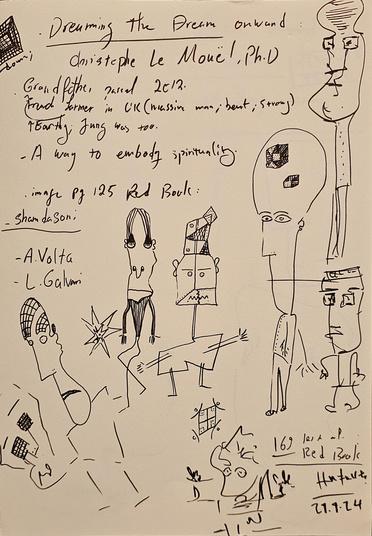 Dreaming the Dream onward :
Christophe Le Mouël, Ph.D
Grandfather passed 2012.
farmer in UK (massive man; bent; strong)
↑ Earthy; Jung was too.
- A way to embody spirituality
. image pg 125 Red Book :
- shamdasani
- A. Volta
- L. Galvani
169 last p.
Red Book
29.9.24